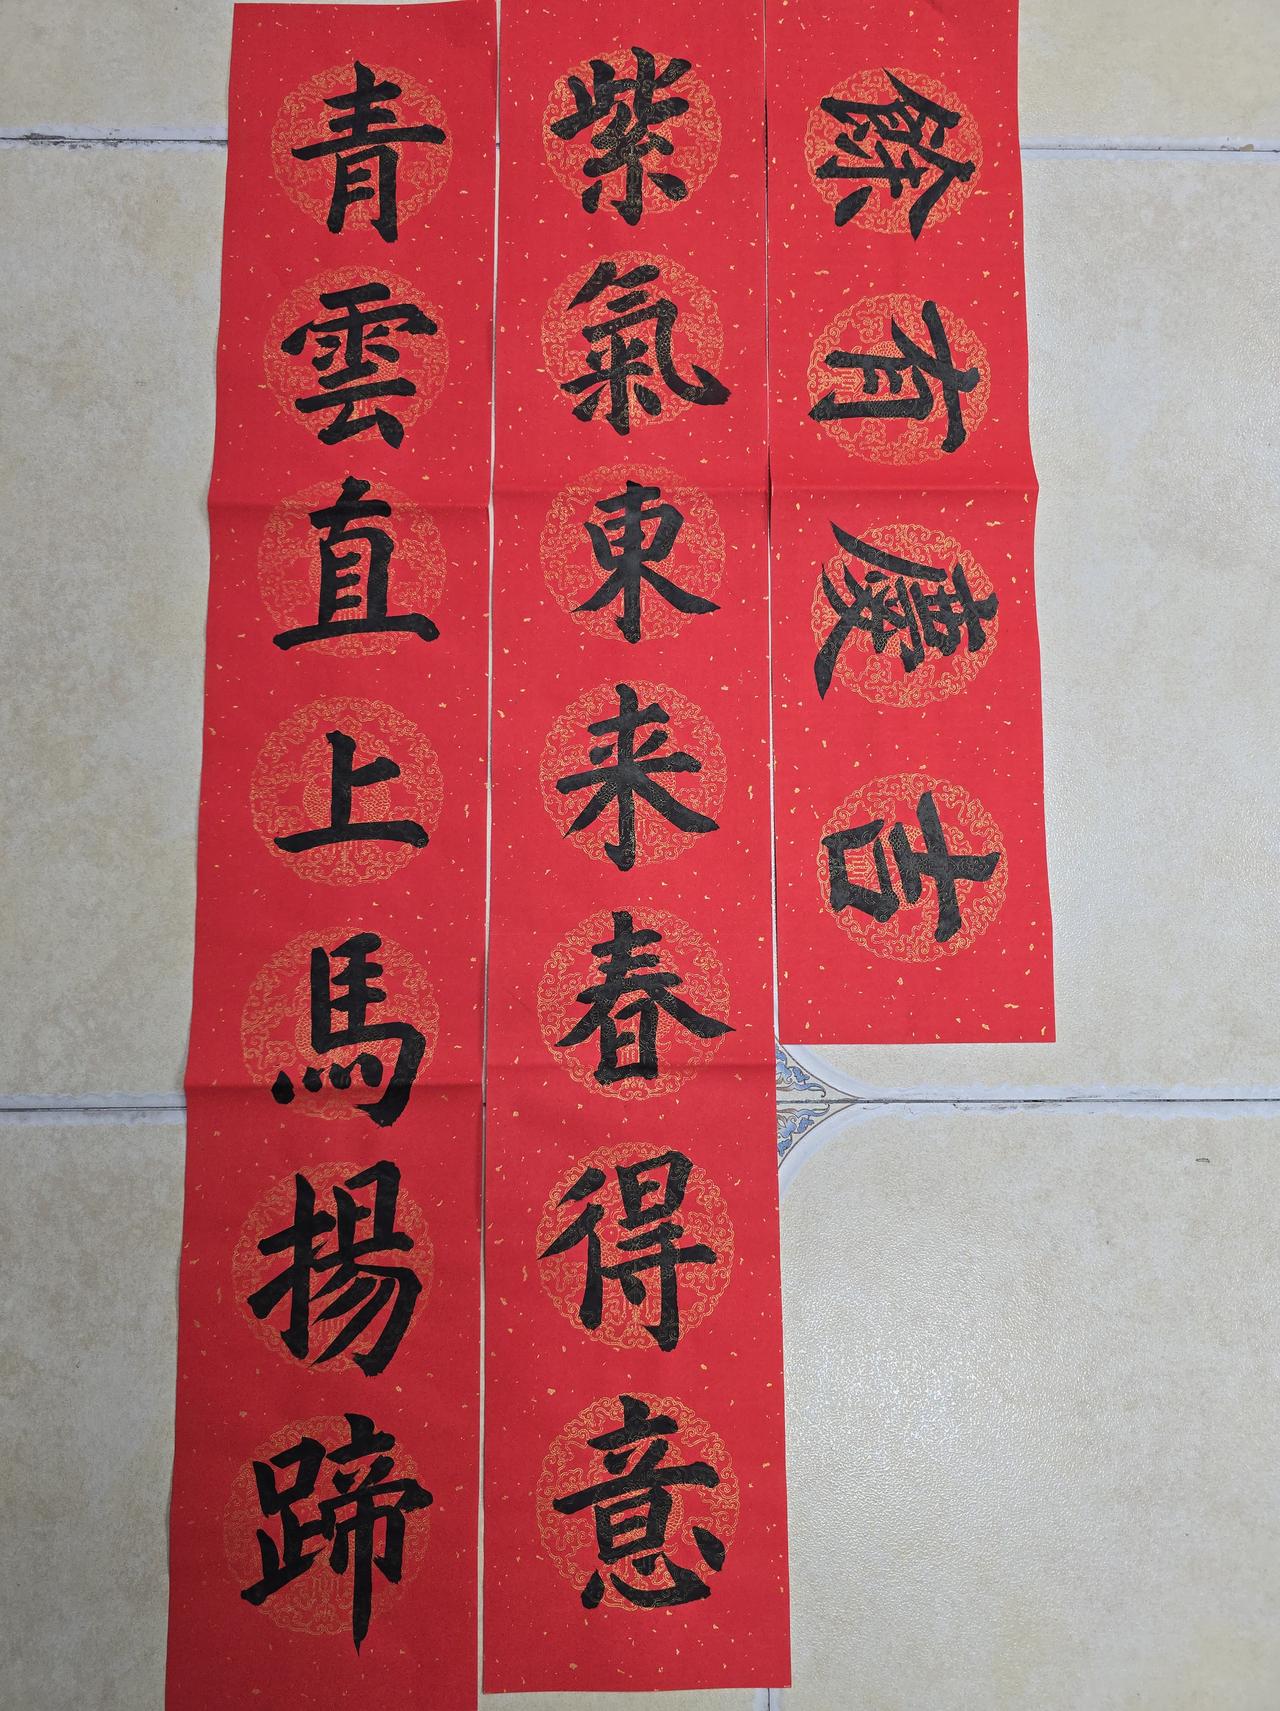 吉慶有餘
紫氣東来春得意
青雲直上馬揚蹄